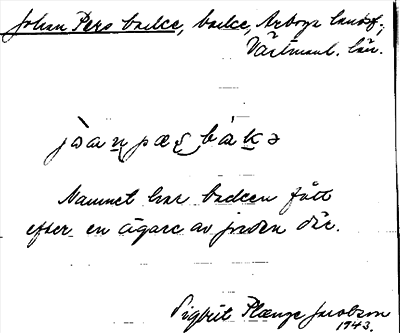 Johan Pers backe, backe, Arboga landsf.,
Västmanl. län.
Namnet har backen fått
efter en ägare av jorden där.
Sigbrit Plænge Jacobson
1943.